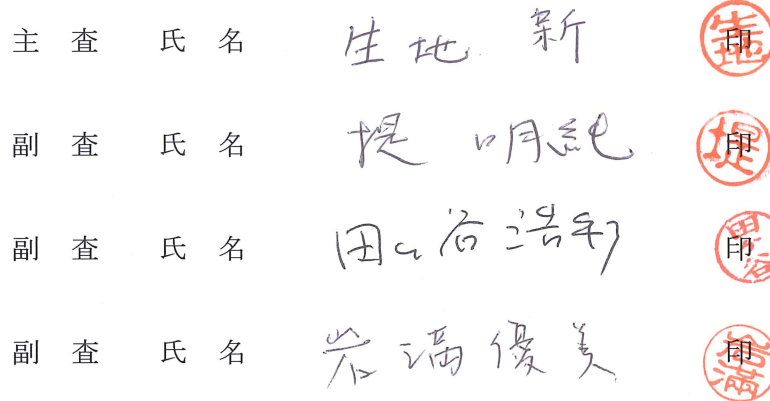 主査 氏名 生地 新 印
副査 氏名 堤 明純 印
副査 氏名 田ヶ谷浩邦 印
副査 氏名 岩満優美 印